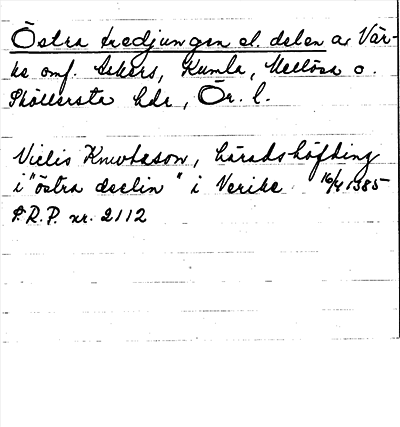 Östra tredjungen el. delen av När-
ke omf. Askers, Kumla, Mellösa o.
Sköllersta hdr, Ör. l.
Niclis Knwtsson, häradshöfding
i "östra deelin" i Nerike 16/4 1385
S.R.P. nr. 2112